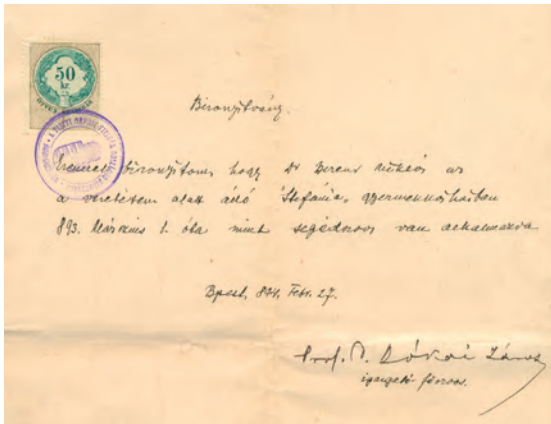 50
kr.
Bizonyítvány.
Ezennel bizonyítom, hogy Dr Berend Miklós úr
a vezetésem alatt álló "Stefánia" gyermekkórházban
893. Március 1. óta mint segédorvos van alkalmazva
Bpest, 894. Febr. 27.
Prof. Dr. Bókai János
igazgató-főorvos.